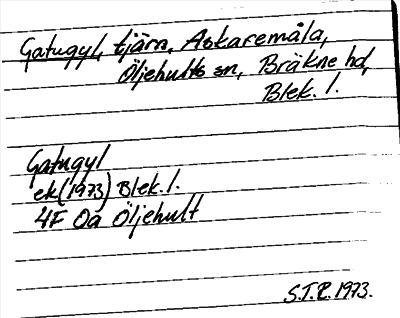 Gatugyl, tjärn, Askaremåla,
Öljehults sn, Bräkne hd,
Blek. l.
Gatugyl
ek(1973) Blek. l.
4F 0a Öljehult
S.T.E. 1973.